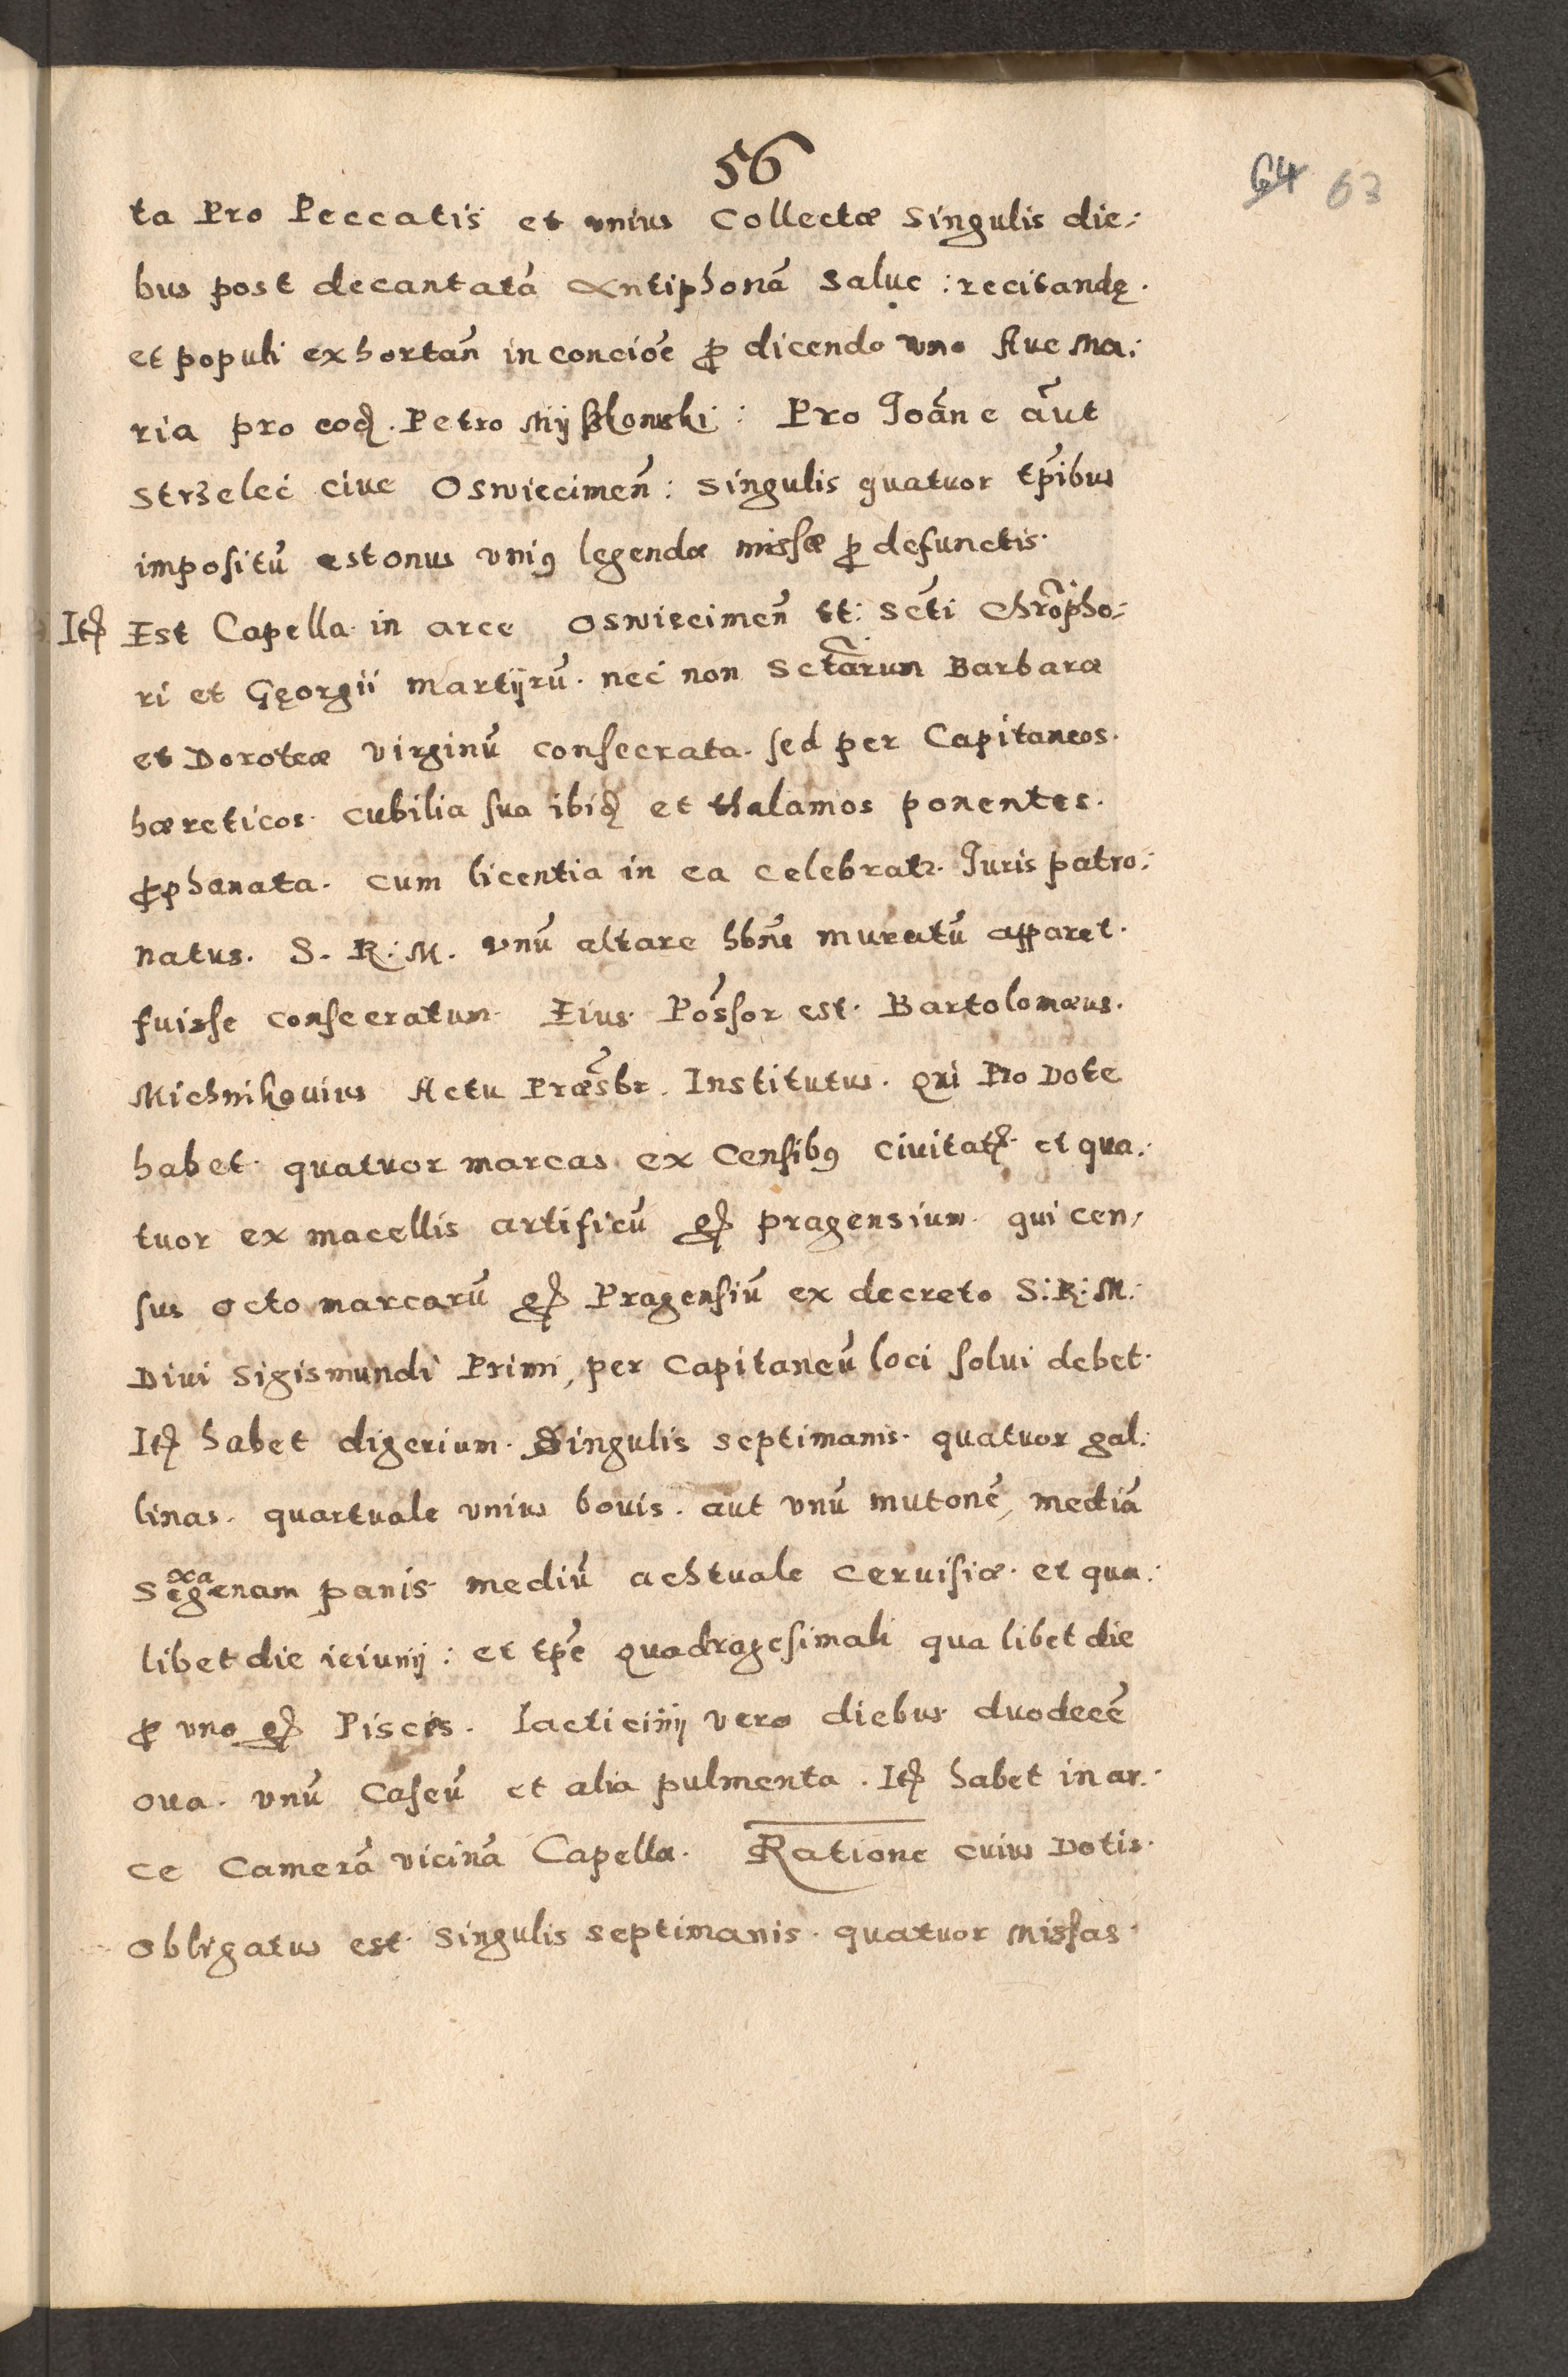 56
64 63
ta Pro Peccatis et vnius Collectæ singulis die:
bus post decantatā Antiphonā Salue: recitandę.
et populi exhortan̄ in concio͞e ꝓ dicendo vno Aue Ma:
ria pro eoꝺ. Petro Mijszkowski: Pro Joān e āut
Strzelec ciue Oswiecimen̄: singulis quatuor tp̄ibus
impositū est onus vniꝯ legendæ missæ ꝓ defunctis.
Itꝫ Est Capella in arce Oswiecimen̄ tt: Sc̄ti Chrōpho:
ri et Gęorgii martijrū. nec non Sctārum Barbaræ
et Doroteæ virginū consecrata. sed per Capitaneos.
hæreticos. cubilia sua ibiꝺ et thalamos ponentes.
ꝓphanata. cum licentia in ea celebratꝛ. Juris patro:
natus. S. R. M. vnū altare hbn̄s muratū apparet.
fuisse consecratum. Eius Pōssor est. Bartolomæus.
Michnikouius Actu Præs̄br. Institutus. qui Pro Dote
habet. quatuor marcas ex Censibꝯ ciuitatꝫ et qua:
tuor ex macellis artificū gꝫ pragensium. qui cen,
sus octo marcarū gꝫ Pragensiū ex decreto S: R: M:
Diui Sigismundi Primi, per Capitaneū loci solui debet.
Itꝫ habet digerium. Singulis septimanis. quatuor gal:
linas. quartuale vnius bouis. aut vnū mutonē, mediā
Sexagenam panis mediū achtuale ceruisiæ. et qua:
libet die ieiunij: et tp̄e quadragesimali qua libet die
ꝓ vno gꝫ Piscis. lacticinij vero diebus duodecē
oua. vnū Caseū et alia pulmenta. Itꝫ habet in ar:
ce Camerā vicinā Capellæ. Ratione cuius Dotis.
obligatus est singulis septimanis. quatuor missas.